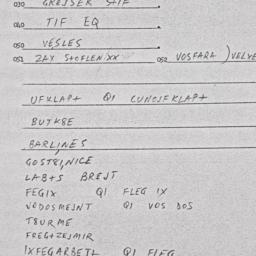 030 GREJSER STIF
040 TIF EQ
050 VESLES
051 ZAX STOFLENIXX 052 VOSFARA) VELVE
UFKLAP+ QI CUNCJFKLAP+
BUTKBE
BARLINES
GOSTEJNICE
LAB+S BREJT
FEGIX QI FLEG IX
VODOSMEJNT QI VOS DOS
TBURME
FREG+ZEJMIR
IXFEGARBETL QI FLEG